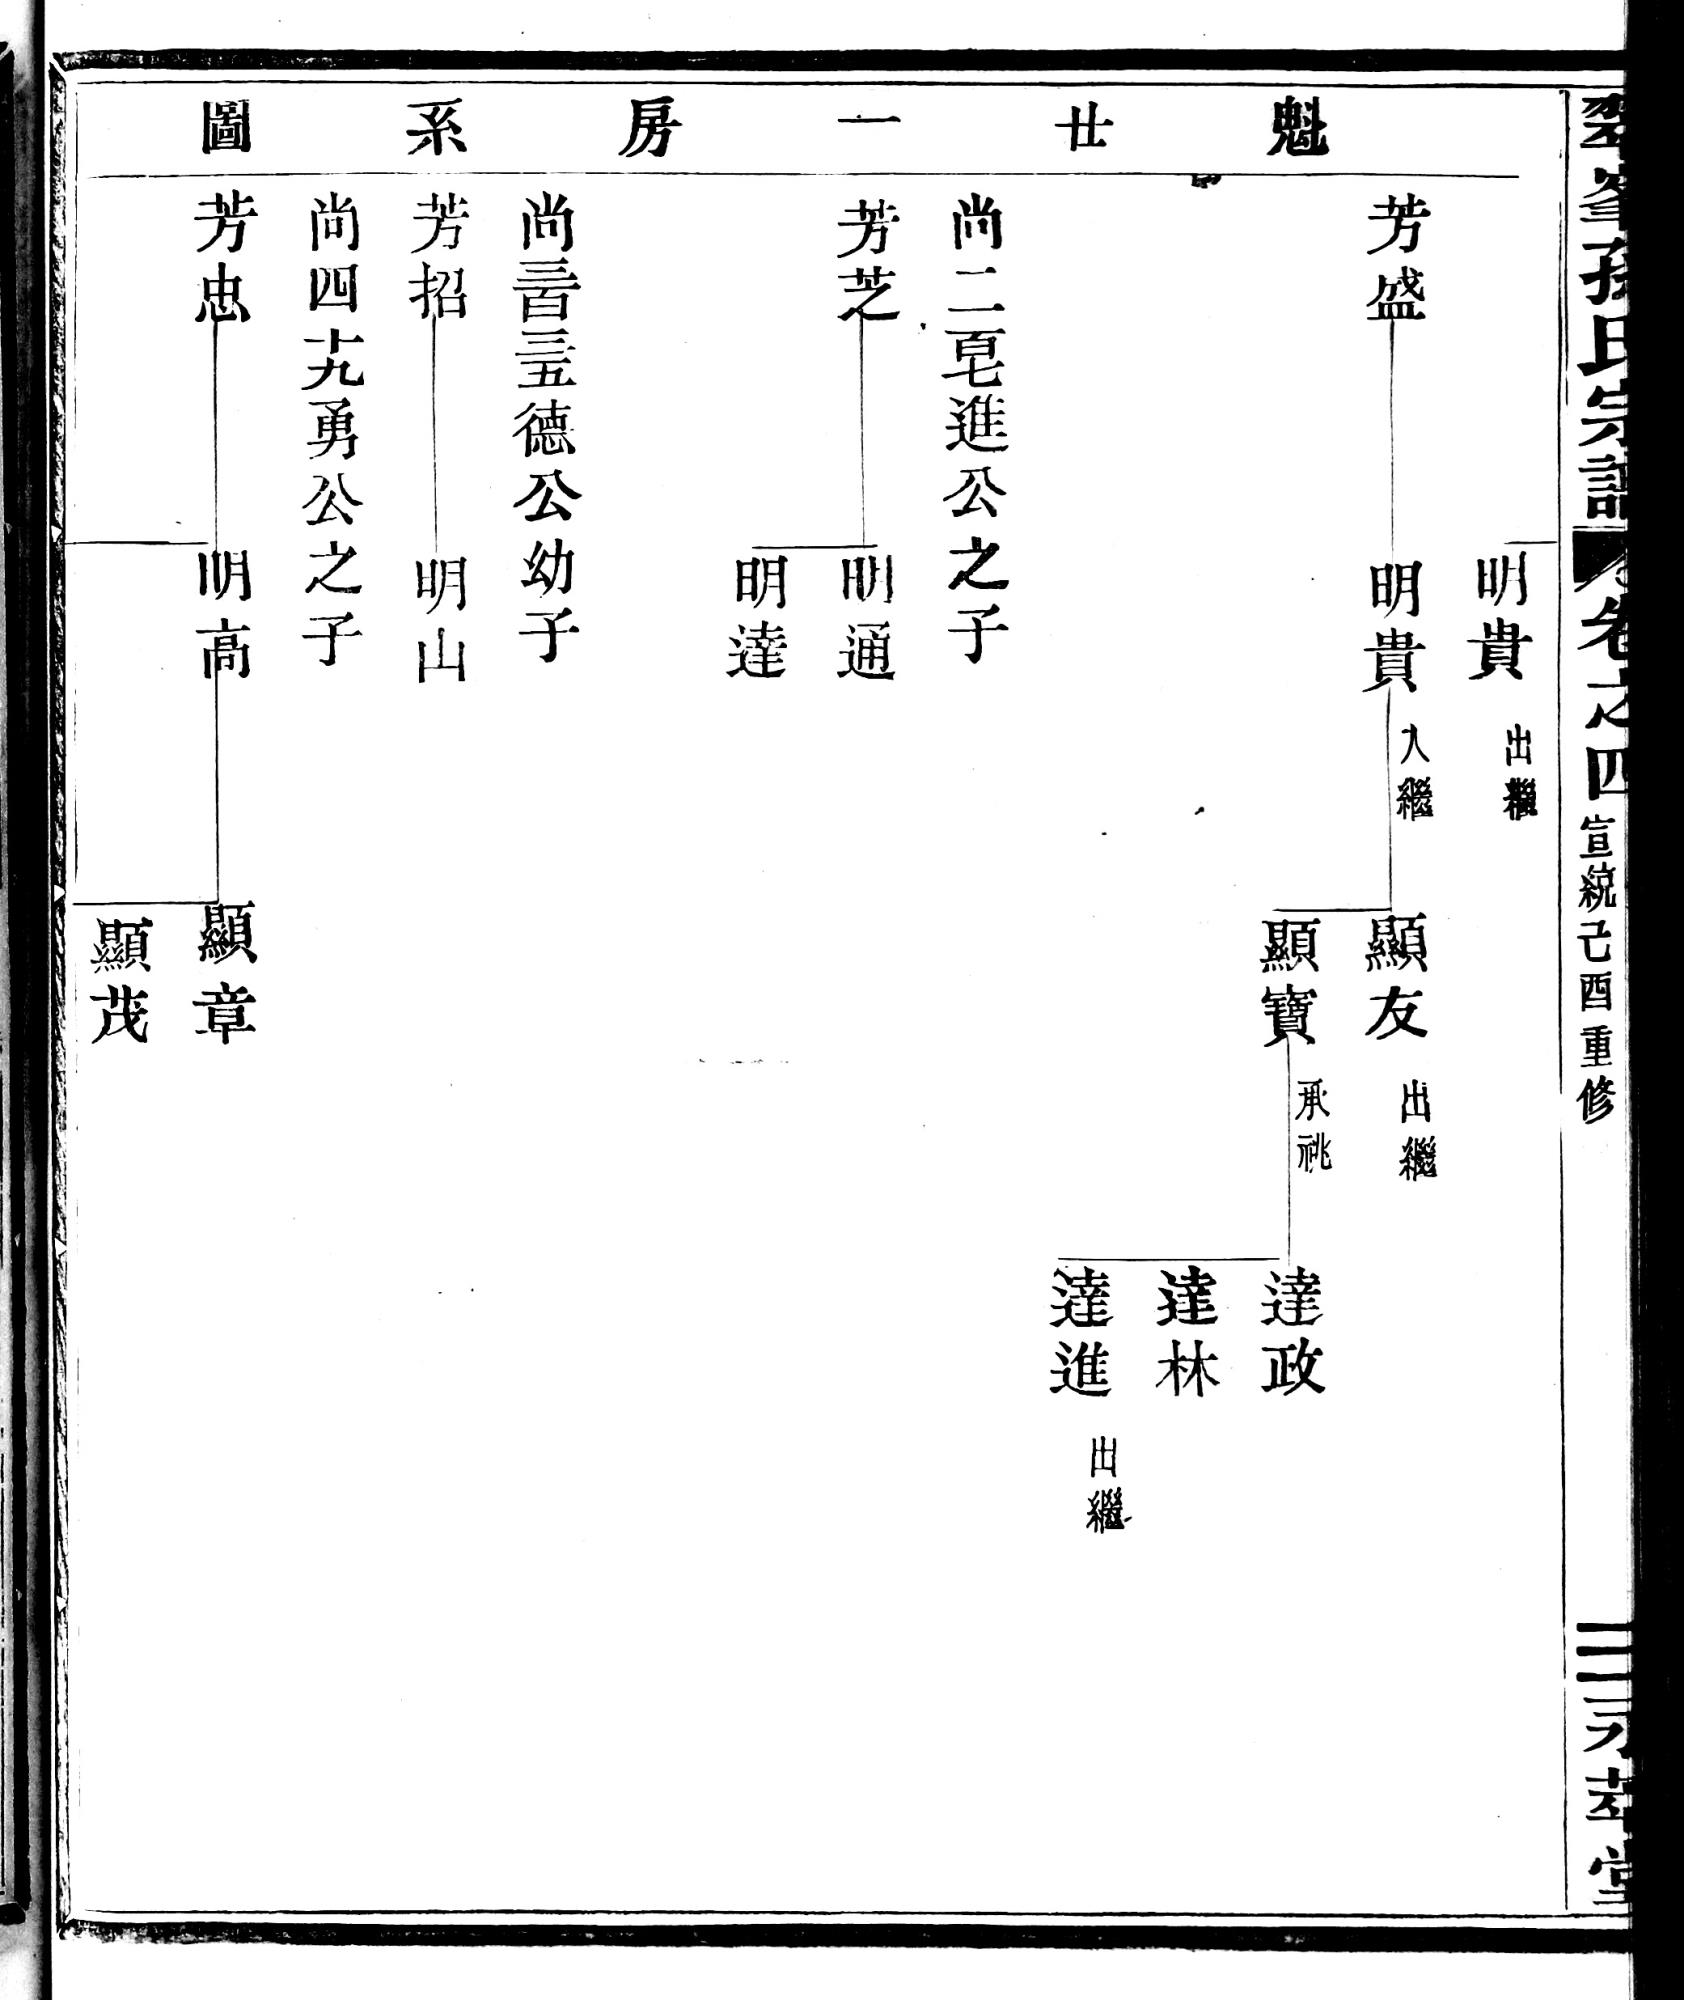 翠峯孫氏宗譜 卷之四 宣統己酉重修 二 永萃堂
魁廿一房系圖
明貴 出繼
芳盛 明貴 入繼 顯友 出繼
顯寶 承祧 達政
達林
達進 出繼
尚二百七進公之子
芳芝 明通
明達
尚三百三五德公幼子
芳招 明山
尚四十九勇公之子
芳忠 明高 顯章
顯茂